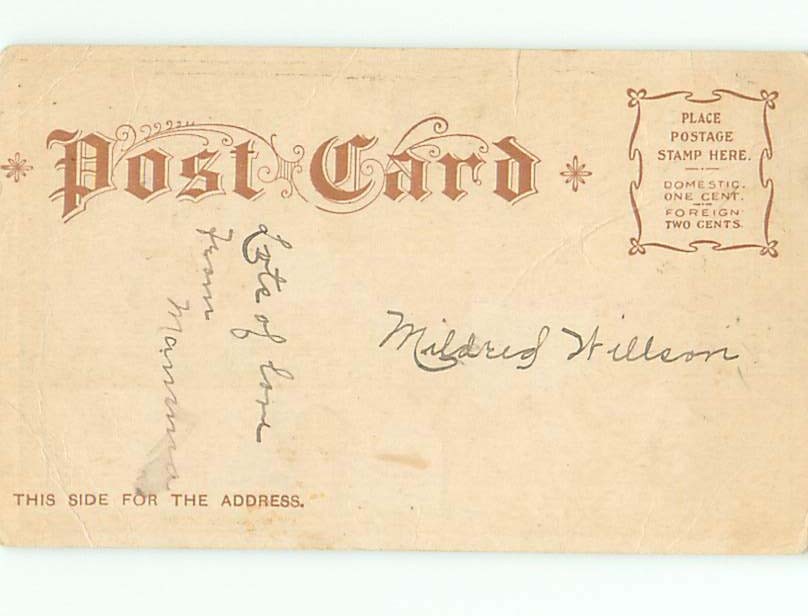 Post Card
PLACE
POSTAGE
STAMP HERE.
DOMESTIC.
ONE CENT.
FOREIGN
TWO CENTS.
Lots of love
from
Mamma
Mildred Willson
THIS SIDE FOR THE ADDRESS.